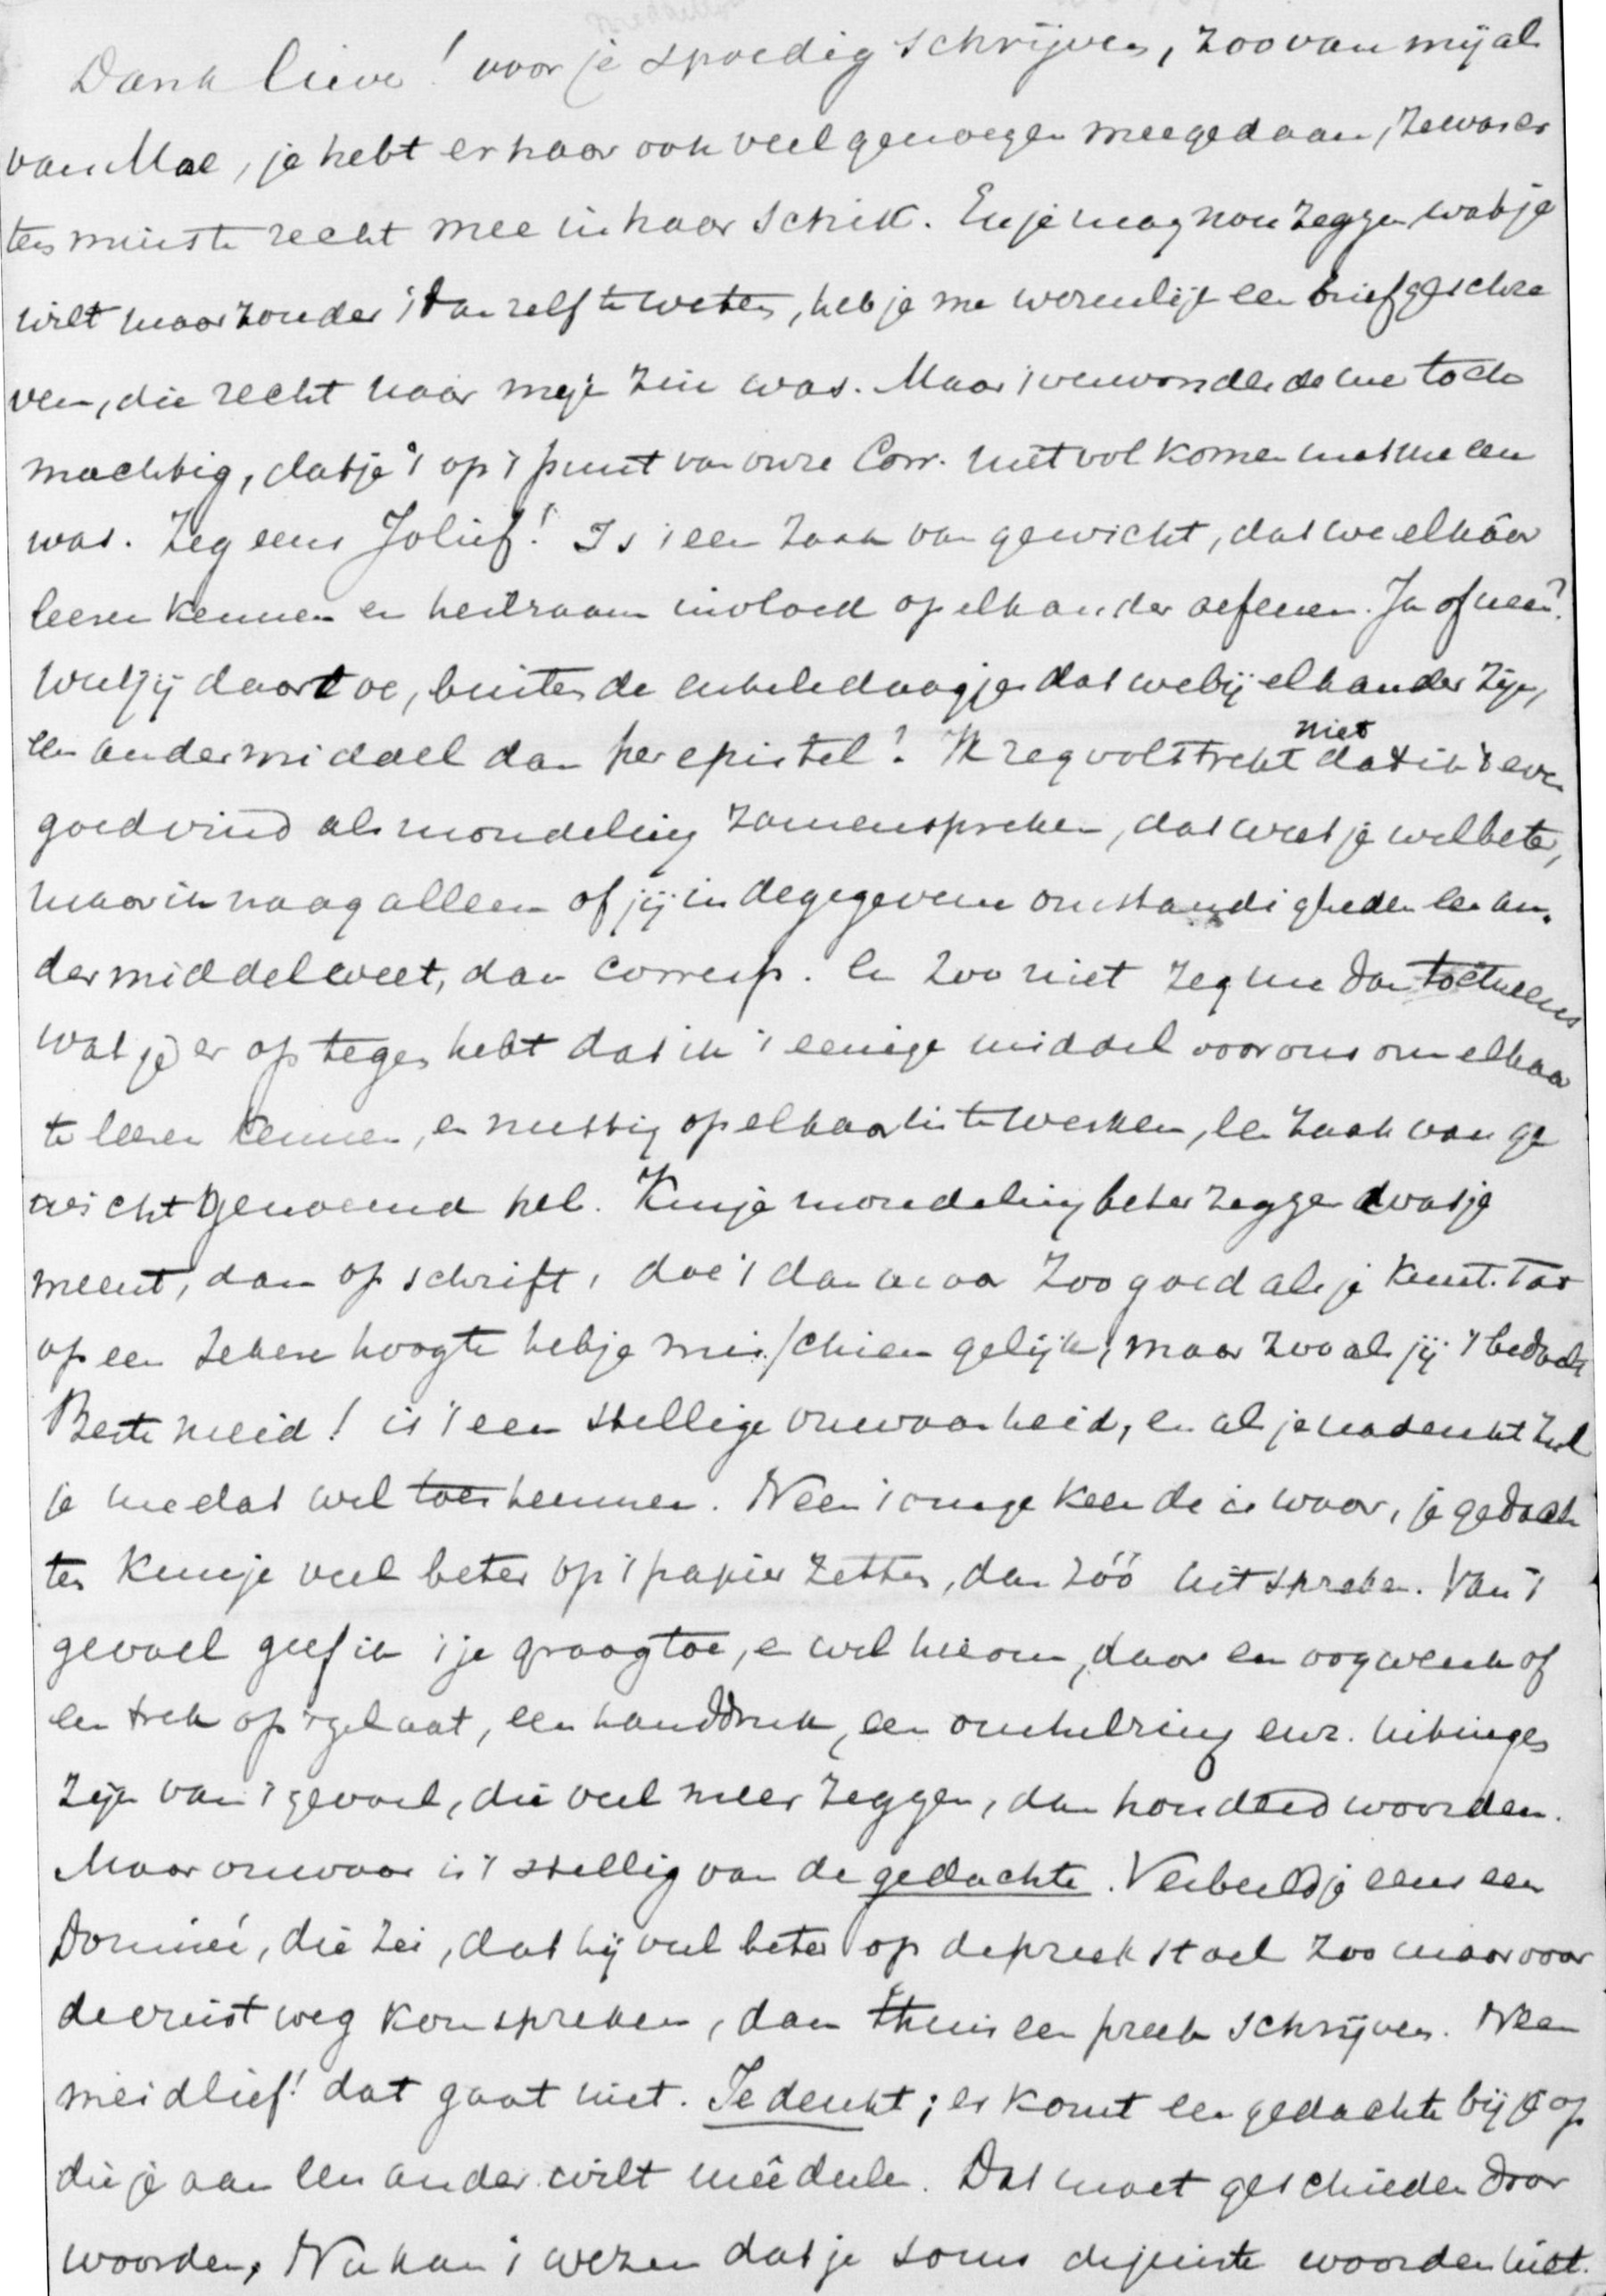 Dank lieve! voor je spoedig schrijven, zoo van mij als
van Mae, je hebt er haar ook veel genoegen meegedaan, ze was er
ten minste recht mee in haar schik. En je mag nou zeggen wat je
wilt maar zonder 't dan zelf te weten, heb je me werenlijk een brief geschre
ven, die recht naar mijn zin was. Maar 't verwonderde me toch
machtig, dat je 't op 't punt van onze Corr. niet volkomen met me een
was. Zeg eens Jolief! Is 't een zaak van gewicht, dat we elkâar
leeren kennen en heilzaam invloed op elkander oefenen. Ja of neen?
Weet jij daartoe, buiten de enkele daagjes dat we bij elkander zijn,
een ander middel dan per epistel? Ik zeg volstrekt niet dat ik 't even
goed vind als mondeling zamenspreken, dat weet je wel beter,
maar ik vraag alleen of jij in de gegeven omstandigheden een an-
der middel weet, dan corresp. En zoo niet zeg me dan toch eens
wat je er op tegen hebt dat ik 't eenige middel voor ons om elkaar
te leeren kennen, en nuttig op elkaar in te werken, een zaak van ge
wicht genoemd heb. Kun je mondeling beter zeggen wat je
meent, dan op schrift, doe 't dan maar zoo goed als je kunt. Tot
op een zekere hoogte heb je misschien gelijk, maar zooals jij 't bedoelt
Beste meid! is 't een stellige onwaarheid, en als je nadenkt zul
je me dat wel toestemmen. Neen 't omgekeerde is waar, je gedach
ten kun je veel beter op 't papier zetten, dan zóó uitspreken. Van 't
gevoel geef ik 't je graag toe, en wel hierom, daar een oogwenk of
een trek op 't gelaat, een handdruk, een omhelzing enz. uitinges
zijn van 't gevoel, die veel meer zeggen, dan honderd woorden.
Maar onwaar is 't stellig van de gedachte. Verbeeld je eens een
Dominé, die zei, dat hij veel beter op de preekstoel zoo maar voor
de vuist weg kon spreken, dan thuis een preek schrijven. Neen
meidlief! dat gaat niet. Je denkt; er komt een gedachte bij je op
die je aan een ander wilt meêdeelen. Dat moet geschieden door
woorden, Nu kan 't wezen dat je soms de juiste woorden niet.